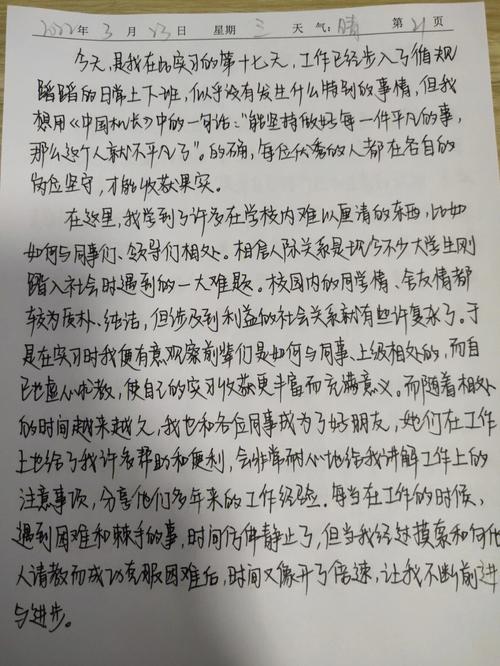 2022年 3 月 23日 星期 三 天气: 晴 第 21 页
今天,是我在的实习的第十七天,工作已经步入了循规
蹈蹈的日常上下班,似乎没有发生什么特别的事情,但我
想用《中国机长》中的一句话:"能坚持做好每一件平凡的事,
那么这个人就不平凡了"。的确,每位优秀的人都在各自的
岗位坚守,才能收获果实。
在这里,我学到了许多在学校内难以厘清的东西,比如
如何与同事们、领导们相处。相信人际关系是现今不少大学生刚
踏入社会时遇到的一大难题。校园内的同学情、舍友情都
较为质朴、纯洁,但涉及到利益的社会关系就有些许复杂了。于
是在实习时我便有意观察前辈们是如何与同事、上级相处的,而自
己也虚心求教,使自己的实习收获更丰富而充满意义。而随着相处
的时间越来越久,我也和各位同事成为了好朋友,她们在工作
上也给了我许多帮助和便利,会非常耐心地给我讲解工作上的
注意事项,分享他们多年来的工作经验。每当在工作的时候,
遇到困难和棘手的事,时间仿佛静止了,但当我经过摸索和向他
人请教而成功克服困难后,时间又像开了倍速,让我不断前进
与进步。